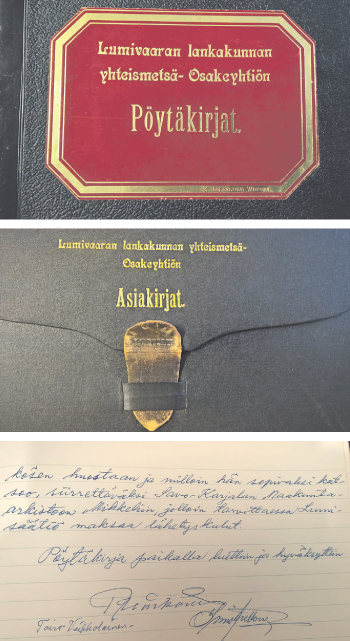 Lumivaaran lankakunnan
yhteismetsä-Osakeyhtiön
Pöytäkirjat.
Lumivaaran lankakunnan yhteismetsä-
Osakeyhtiön
Asiakirjat.
kösen huostaan ja milloin hän sopivaksi kat-
soo, siirrettäväksi Savo-Karjalan Maakunta-
arkistoon Mikkeliin, jolloin tarvittaessa Lumi-
säätiö maksaa lähetyskulut.
Pöytäkirja paikalla luettiin ja hyväksyttiin
Toivo